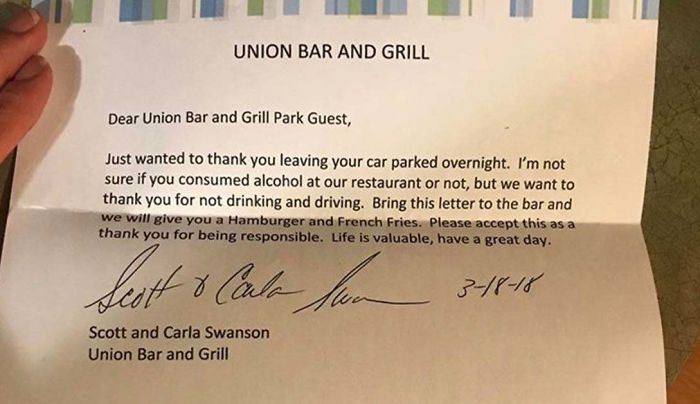 UNION BAR AND GRILL
Dear Union Bar and Grill Park Guest,
Just wanted to thank you leaving your car parked overnight. I'm not
sure if you consumed alcohol at our restaurant or not, but we want to
thank you for not drinking and driving. Bring this letter to the bar and
we will give you a Hamburger and French Fries. Please accept this as a
thank you for being responsible. Life is valuable, have a great day.
Scott & Carla Swan 3-18-18
Scott and Carla Swanson
Union Bar and Grill